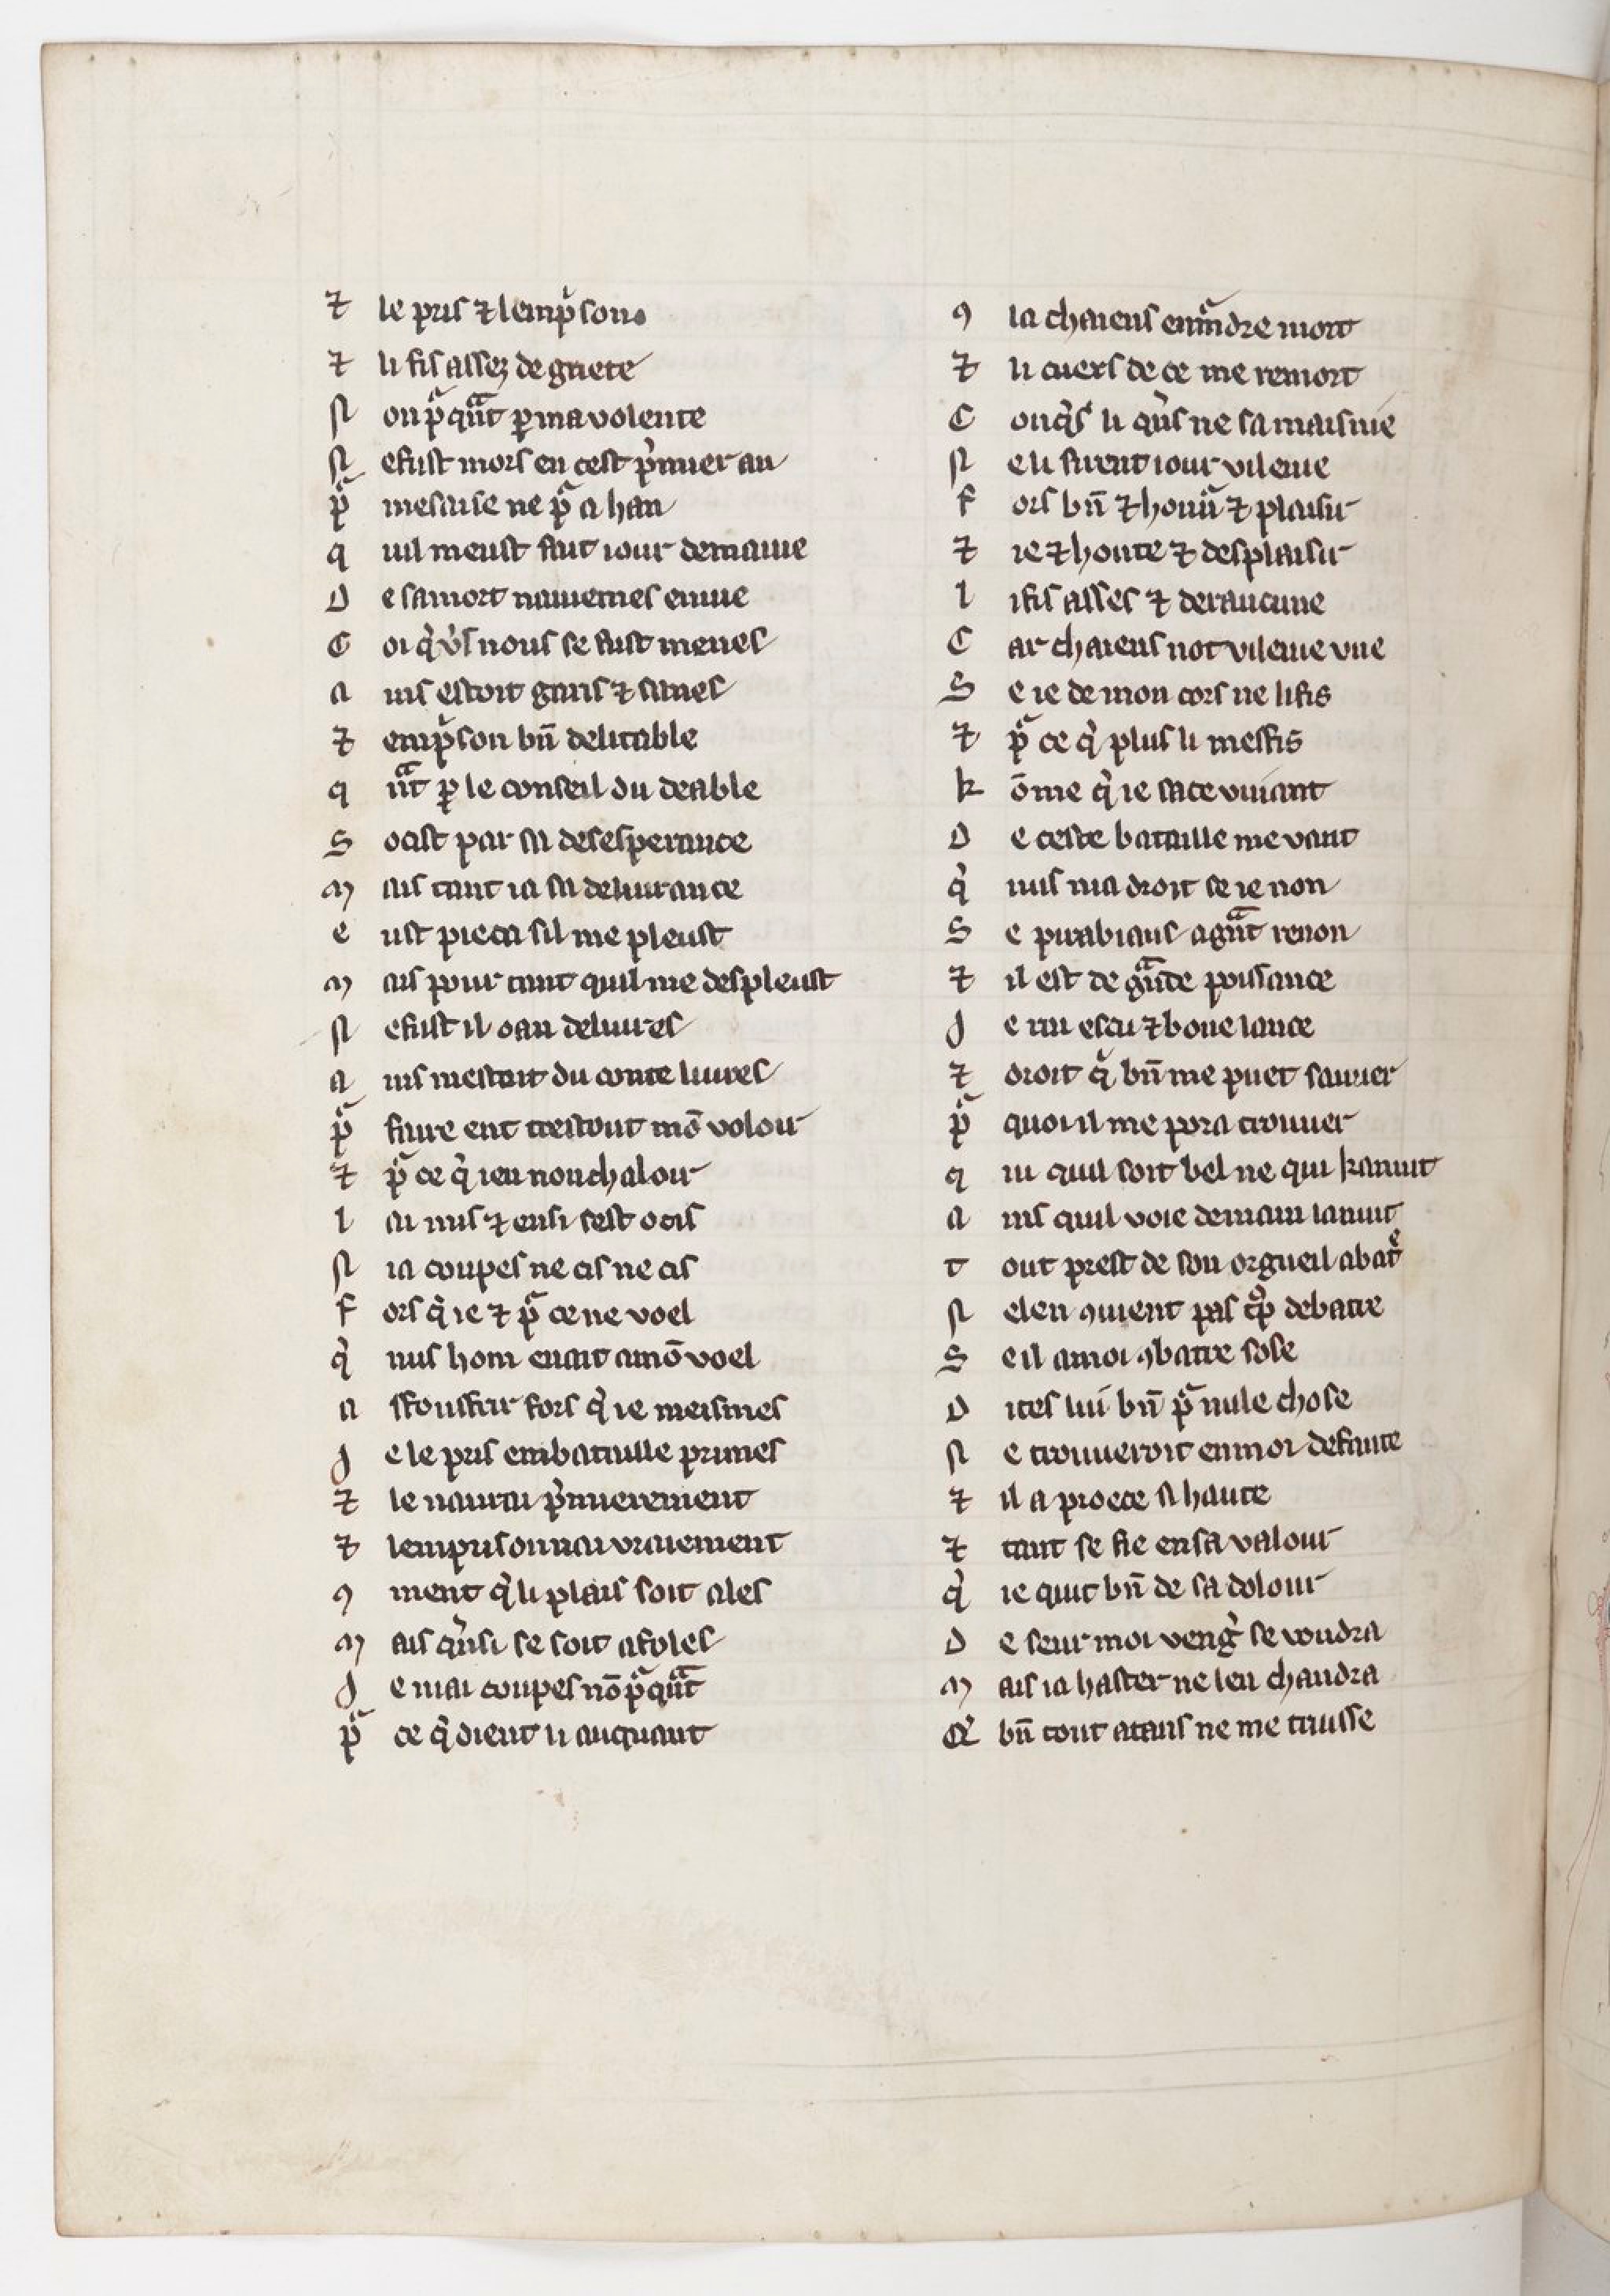 ⁊ le pris ⁊ lempͥson.
⁊ li fis assez de griete
N on pͣqͣnt ꝑ ma volente
N e fust mors en cest pͥmier an
pͣ mesaise ne pͣ ahan
q uil meust fait iour demaine
D e sa mort nauiemes enuie
C oi qͥl vs nous se fust menes
A ins estoit garis ⁊ sanes
⁊ empͥson bn̄ delitable
q ͣnt ꝑ le conseil du deable
S ocist par sa desesperance
M ais tant ia sa deliurance
E ust pieca sil me pleust
M ais pour tant quil me despleust
N e fust il oan deliures
A ins mestoit du conte liures
pͣ faire ent trestout mō voloir
⁊ pͣ ce qͥ ieu nonchaloir
l ai mis ⁊ ensi sest ocis
N ia coupes ne cis ne cis
F ors qͥ ie ⁊ pͣ ce ne voel
qͥ nus hom enait a mō voel
A ffoustir fors qͥ ie meismes
J e le pris en bataille primes
⁊ le naurai pͥmierement
⁊ lemprisonnai vraiement
ꝯ ment qͥ li plais soit ales
M ais qͥnsi se soit afoles
J e niai coupes nō pͣqͣnt
pͣ ce qͥ dient li auquant
ꝯ la chaiens enmͣindre mort
⁊ li cuers de ce me remort
C onqͥs li qͥns ne sa maisnie
N e li firent iour vilenie
F ors bn̄ ⁊ honnͣ ⁊ plaisir
⁊ ie ⁊ honte ⁊ desplaisir
l i fis asses ⁊ de rancune
C ar chaiens not vilenie vne
S e ie de mon cors ne li fis
⁊ pͣ ce qͥ plus li mesfis
k ōme qͥ ie sace viuant
D e ceste bataille me vant
qͥ nus ni a droit se ie non
S e pirabiaus a gͣnt renon
⁊ il est de gͣnde poissance
J e rai escu ⁊ bone lance
⁊ droit qͥ bn̄ me puet sauuer
pͣ quoi il me pora trouuer
q ui quil soit bel ne qui kanuit
A ins quil voie demain lanuit
T out prest de son orgueil abatͤ
N e len ꝯuient pas tͦp debatre
S e il a moi ꝯbatre sose
D ites lui bn̄ pͣ nule chose
N e trouueroit en moi defaute
⁊ il a proece si haute
⁊ tant se fie en sa valour
qͥ ie quit bn̄ de sa dolour
D e seur moi vengͥ se voudra
M ais ia haster ne len chaudra
Qͥ bn̄ tout a tans ne me truisse